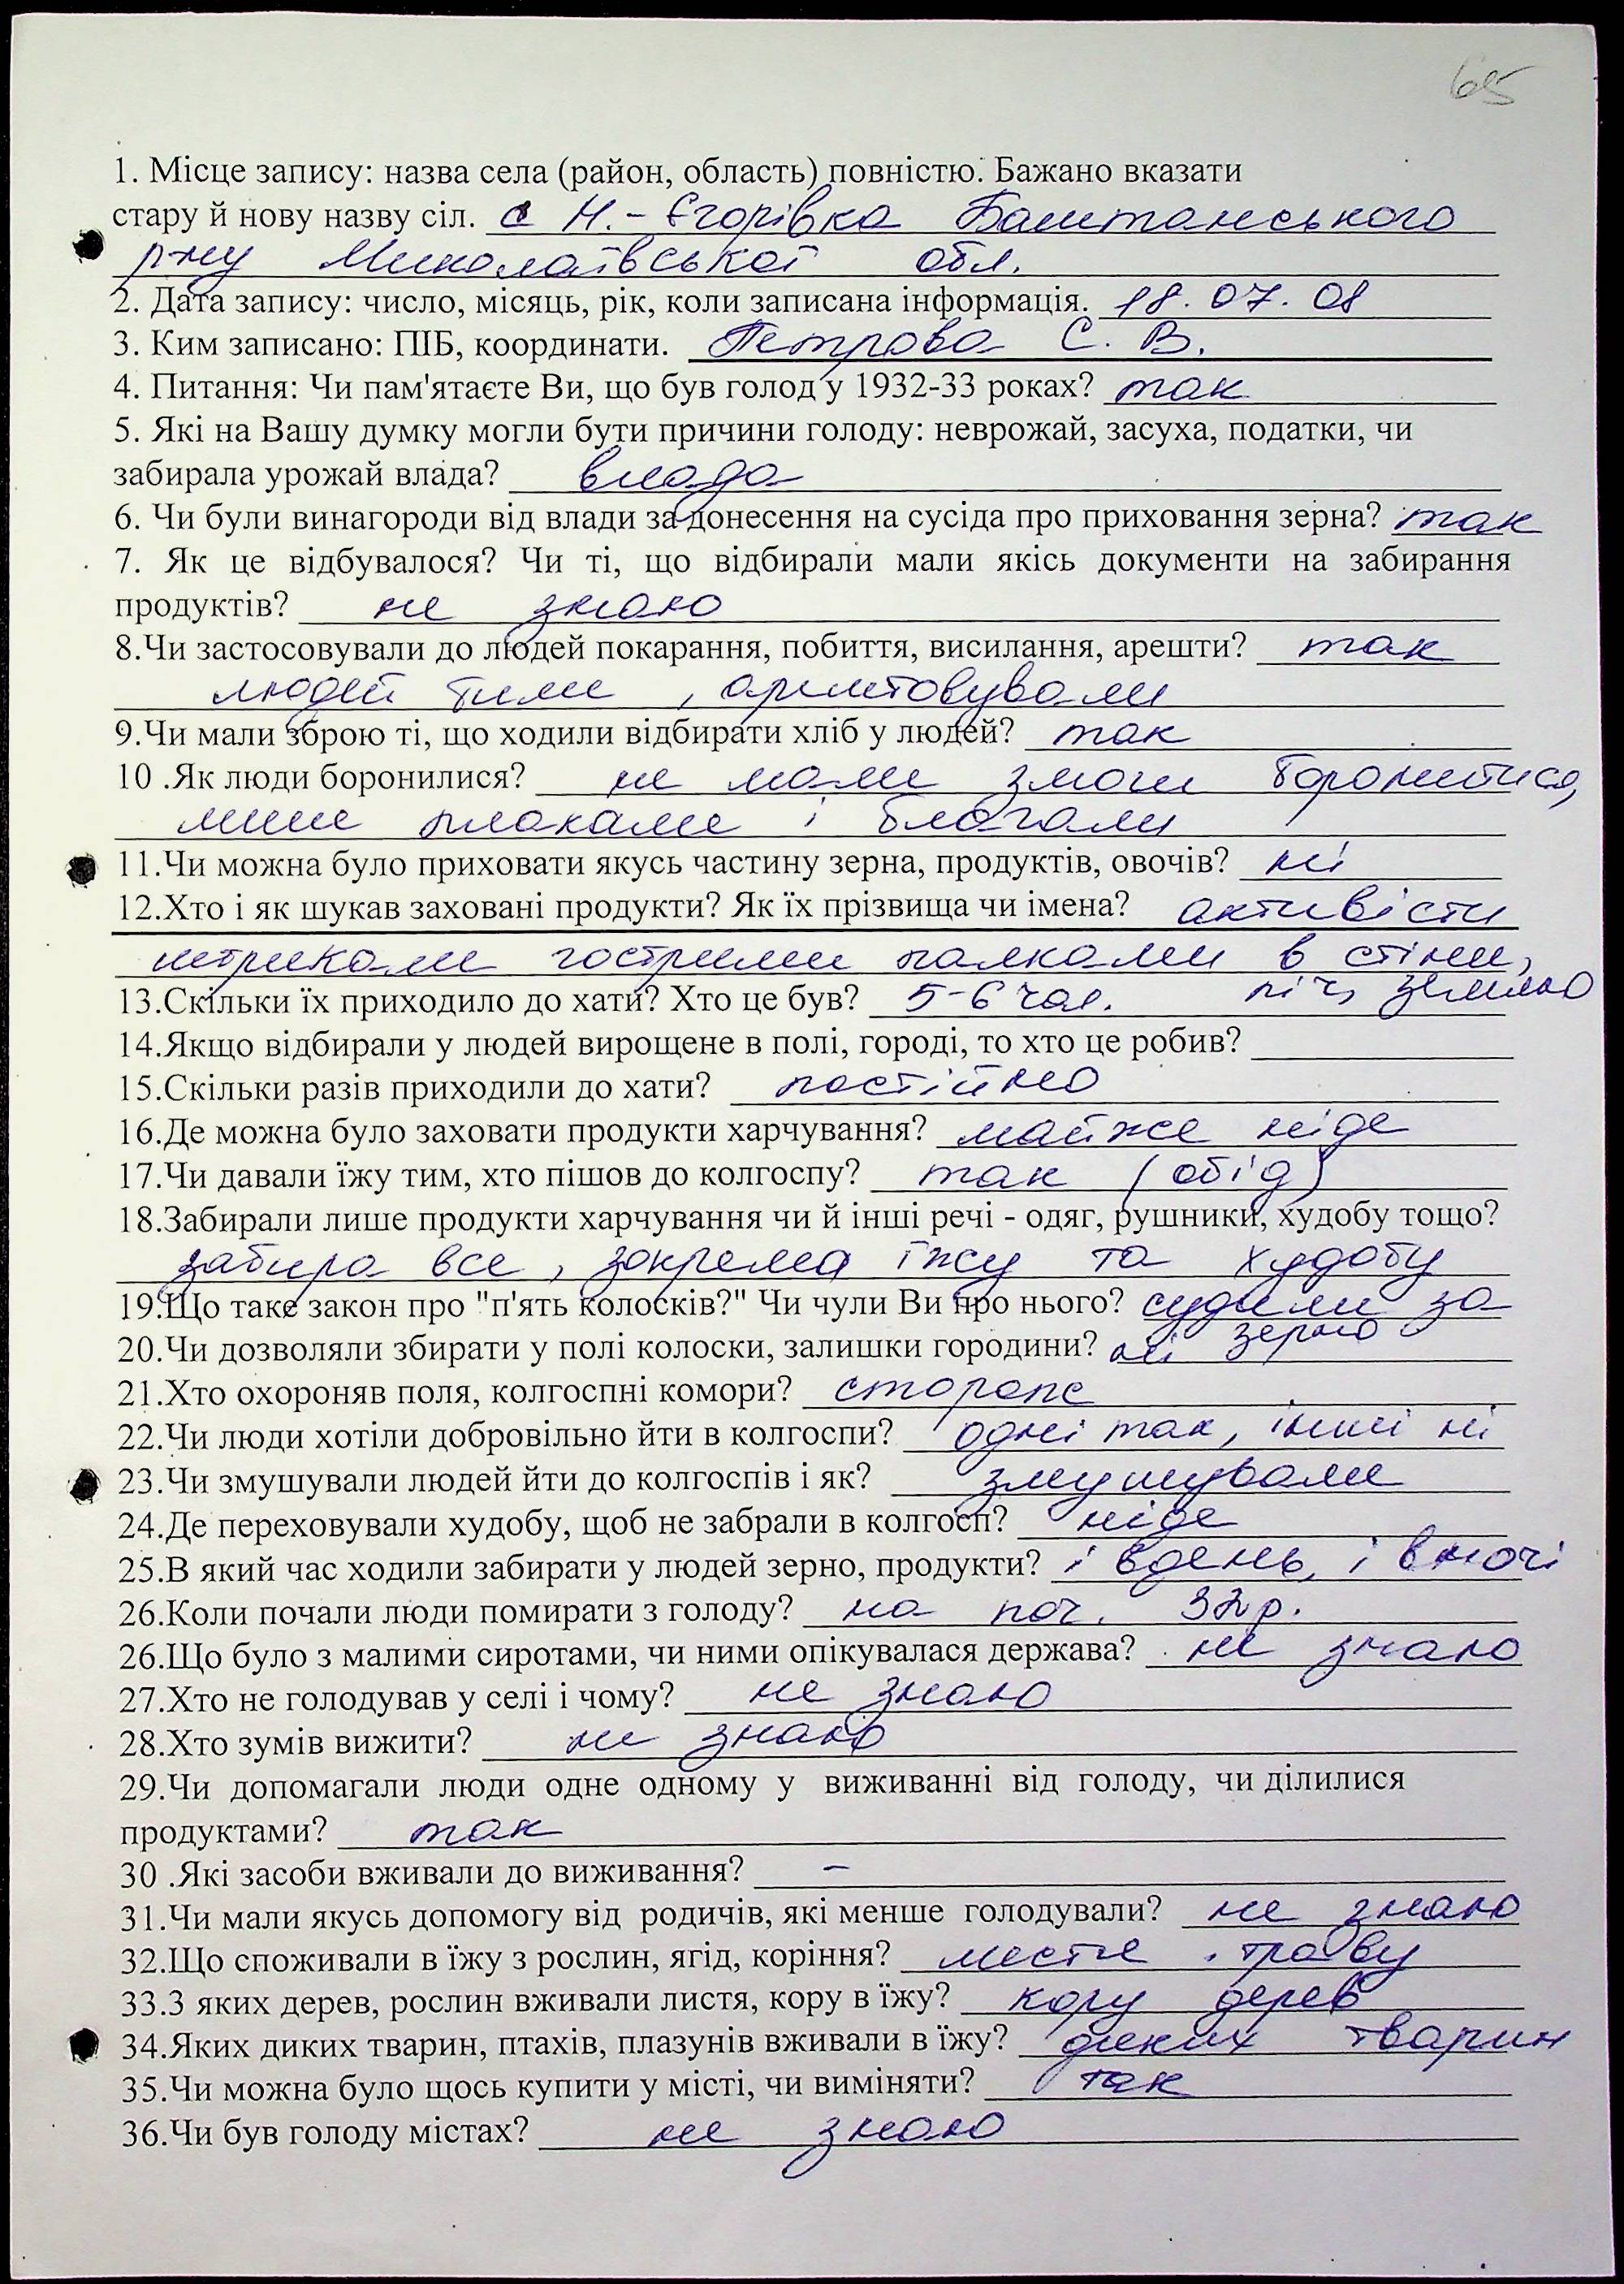 65
1. Місце запису: назва села (район, область) повністю. Бажано вказати
стару й нову назву сіл. с Н.-Єгорівка Баштанського
р-ну Миколаївської обл.
2. Дата запису: число, місяць, рік, коли записана інформація. 18.07.08
3. Ким записано: ПІБ, координати. Петрова С. В.
4. Питання: Чи пам'ятаєте Ви, що був голод у 1932-33 роках? так
5. Які на Вашу думку могли бути причини голоду: неврожай, засуха, податки, чи
забирала урожай влада? влада
6. Чи були винагороди від влади за донесення на сусіда про приховання зерна? так
7. Як це відбувалося? Чи ті, що відбирали мали якісь документи на забирання
продуктів? не знаю
8.Чи застосовували до людей покарання, побиття, висилання, арешти? так
людей били, арештовували
9.Чи мали зброю ті, що ходили відбирати хліб у людей? так
10 .Як люди боронилися? не мали змоги боронитися,
лише плакали і благали
11.Чи можна було приховати якусь частину зерна, продуктів, овочів? ні
12.Хто і як шукав заховані продукти? Як їх прізвища чи імена? активісти
штрикали гострими палками в стіни,
піч, землю
13.Скільки їх приходило до хати? Хто це був? 5-6 чол.
14.Якщо відбирали у людей вирощене в полі, городі, то хто це робив?
15.Скільки разів приходили до хати? постійно
16.Де можна було заховати продукти харчування? майже ніде
17.Чи давали їжу тим, хто пішов до колгоспу? так (обід)
18.Забирали лише продукти харчування чи й інші речі - одяг, рушники, худобу тощо?
забира все, зокрема їжу та худобу
19.Що таке закон про "п'ять колосків?" Чи чули Ви про нього? судили за
зерно
20.Чи дозволяли збирати у полі колоски, залишки городини? ні
21.Хто охороняв поля, колгоспні комори? сторожі
22.Чи люди хотіли добровільно йти в колгоспи? одні так, інші ні
23.Чи змушували людей йти до колгоспів і як? змушували
24.Де переховували худобу, щоб не забрали в колгосп? ніде
25.В який час ходили забирати у людей зерно, продукти? і вдень, і вночі
26.Коли почали люди помирати з голоду? на поч. 32р.
26.Що було з малими сиротами, чи ними опікувалася держава? не знаю
27.Хто не голодував у селі і чому? не знаю
28.Хто зумів вижити? не знаю
29.Чи допомагали люди одне одному у виживанні від голоду, чи ділилися
продуктами? так
30 .Які засоби вживали до виживання? –
31.Чи мали якусь допомогу від родичів, які менше голодували? не знаю
32.Що споживали в їжу з рослин, ягід, коріння? листя, траву
33.З яких дерев, рослин вживали листя, кору в їжу? кору дерев
34.Яких диких тварин, птахів, плазунів вживали в їжу? диких тварин
35.Чи можна було щось купити у місті, чи виміняти? так
36.Чи був голоду містах? не знаю